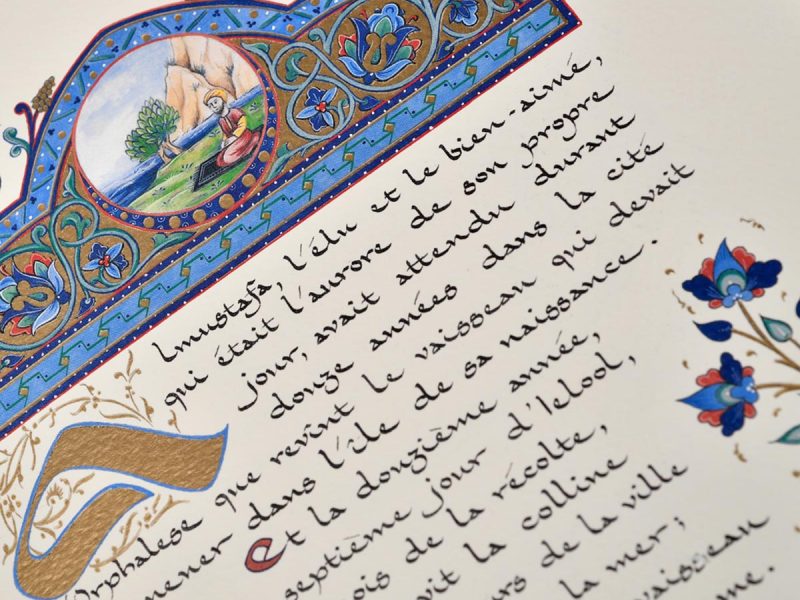 Almustafa, l'élu et le bien-aimé,
qui était l'aurore de son propre
jour, avait attendu durant
douze années dans la cité
Orphalese que revînt le vaisseau qui devait
mener dans l'île de sa naissance.
Et la douzième année,
septième jour d'Ielool,
ois de la récolte,
vit la colline
rs de la ville
la mer;
vaisseau
me.